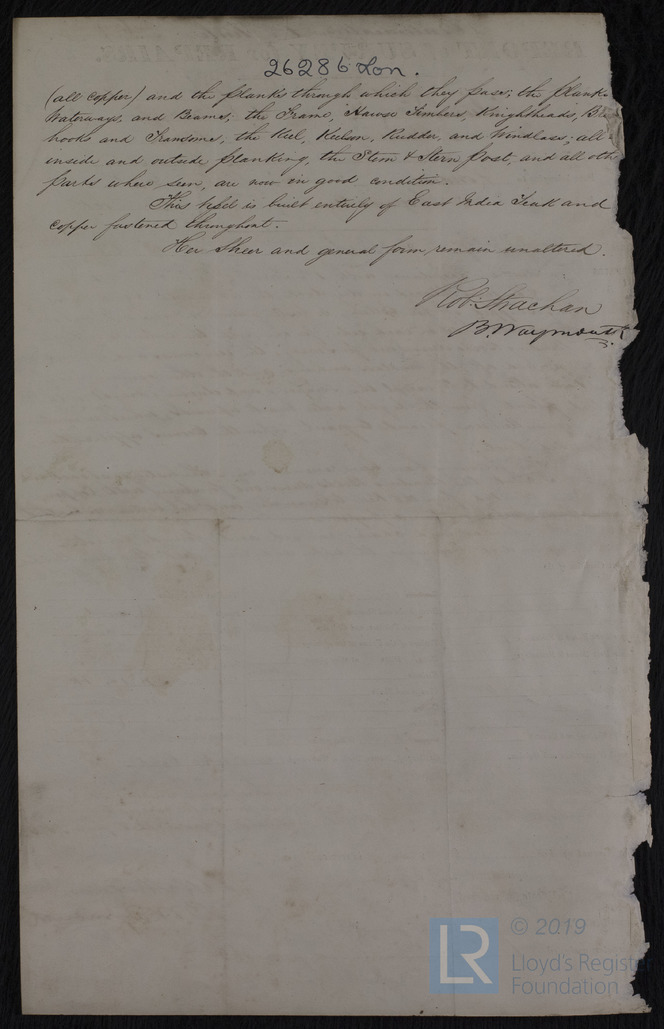 26286 Lon.
(all copper) and the planks through which they pass; the Plank
Waterways, and Beams; the Frame, Hawse Timbers, Knightheads, Br
hooks and Transoms, the Keel, Kielson, Rudder, and Windlass; all
inside and outside planking, the Stem & Stern Post, and all oth
parts where seen, are now in good condition.
This vessel is built entirely of East India Teak and
copper fastened throughout.
Her Sheer and general form, remain unaltered.
Rob. Strachan
B. Waymouth
© 2019
LR
Lloyd's Register
Foundation